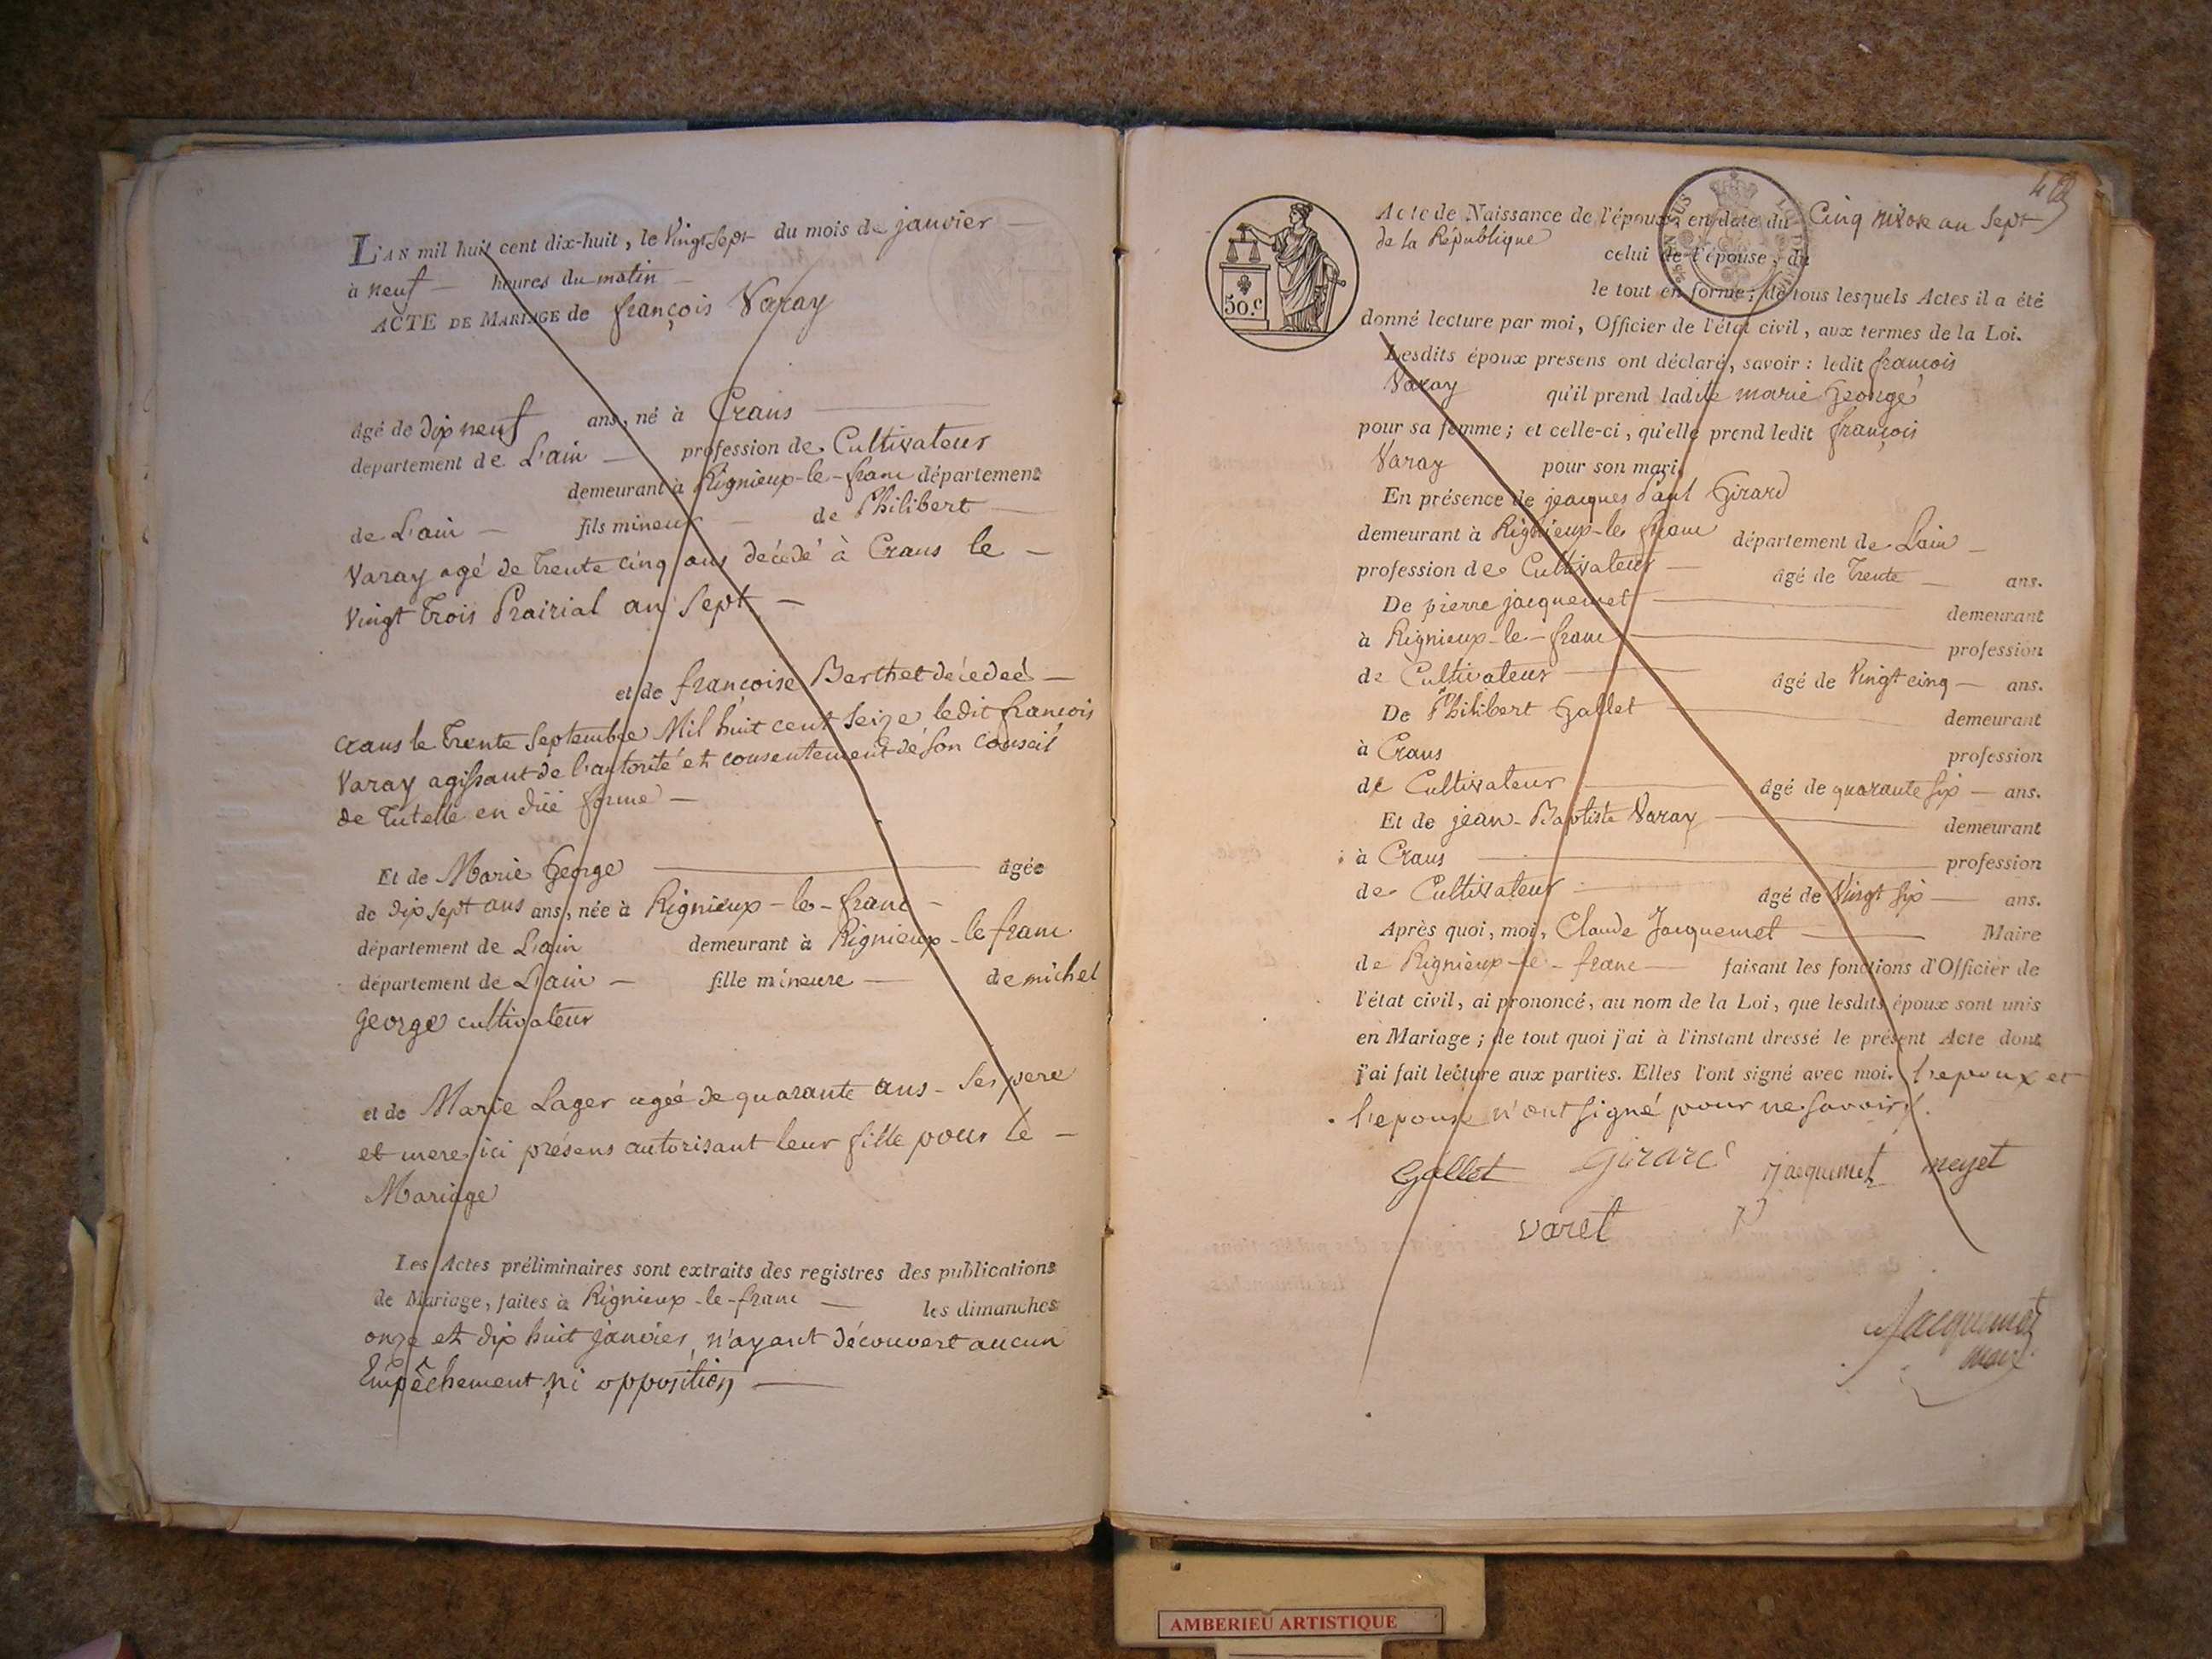 L'AN mil huit cent dix-huit, le Vingt Sept du mois de janvier
à neuf heures du matin
ACTE DE MARIAGE de françois Varay
âgé de dix neuf ans, né à Crans
département de L'ain profession de Cultivateur
demeurant à Rignieux-le-franc département
de L'ain fils mineur de Philibert
Varay agé de Trente Cinq ans décédé à Crans le
Vingt Trois Prairial an Sept
et de françoise Berthet décedeé
crans le Trente Septembre Mil huit cent Seize ledit françois
Varay agissant de l'autorité et consentement de son Conseil
de Tutelle en düe forme
Et de Marie George âgée
de dix sept ans ans, née à Rignieux-le-franc
département de L'ain demeurant à Rignieux-le franc
département de L'ain fille mineure de michel
george cultivateur
et de Marie Lager ageé de quarante ans - Ses pere
et mere ici présens autorisant leur fille pour le
Mariage
Les Actes préliminaires sont extraits des registres des publications
de Mariage, faites à Rignieux-le-franc les dimanches
onze et dix huit janvier, n'ayant découvert aucun
Empêchement ni opposition
Acte de Naissance de l'époux, en date du Cinq nivose an Sept
de la République
celui de l'épouse, du
le tout en forme; de tous lesquels Actes il a été
donné lecture par moi, Officier de l'état civil, aux termes de la Loi.
50.c
Lesdits époux presens ont déclaré, savoir: ledit françois
Varay qu'il prend ladite marie George
pour sa femme; et celle-ci, qu'elle prend ledit françois
Varay pour son mari.
En présence de jeacques Paul Girard
demeurant à Rignieux-le franc département de Lain
profession de Cultivateur âgé de Trente ans.
De pierre jacquemet demeurant
à Rignieux-le-franc profession
de Cultivateur âgé de Vingt cinq ans.
De Philibert Gallet demeurant
à Crans profession
de Cultivateur âgé de quarante six ans.
Et de jean-Baptiste Varay demeurant
à Crans profession
de Cultivateur âgé de Vingt six ans.
Après quoi, moi, Claude Jacquemet Maire
de Rignieux-le-franc faisant les fonctions d'Officier de
l'état civil, ai prononcé, au nom de la Loi, que lesdits époux sont unis
en Mariage; de tout quoi j'ai à l'instant dressé le présent Acte dont
j'ai fait lecture aux parties. Elles l'ont signé avec moi. l'epoux et
l'epouse n'ont signé pour ne savoir.
Gallet Girard jacquemet meyet
varet
Jacquemet
maire
AMBERIEU ARTISTIQUE